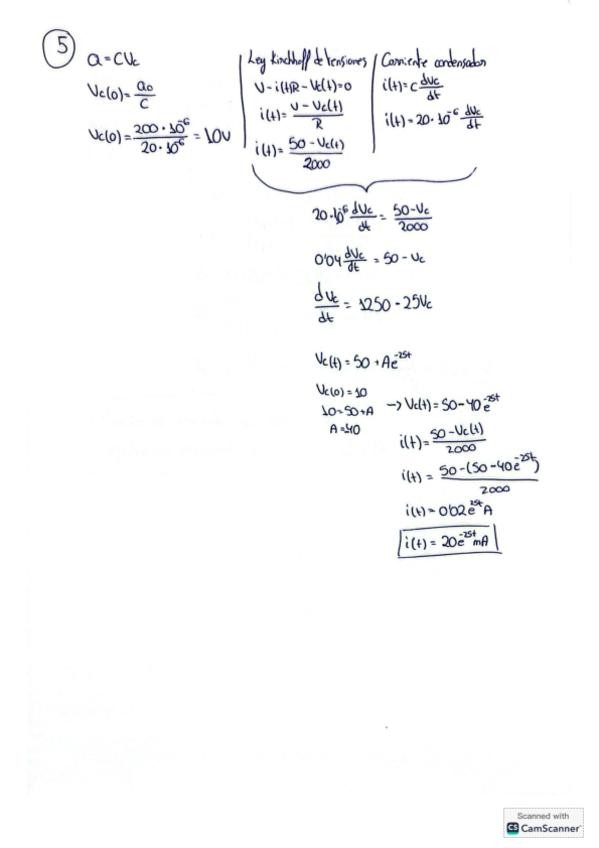 5
a = CVc
Vc(0) = a0/C
Vc(0) = 200·10^-6 / 20·10^-6 = 10V
Ley Kirchhoff de tensiones
V - i(t)R - Vc(t) = 0
i(t) = V - Vc(t) / R
i(t) = 50 - Vc(t) / 2000
Corriente condensador
i(t) = C dVc/dt
i(t) = 20·10^-6 dVc/dt
20·10^-6 dVc/dt = 50 - Vc / 2000
0'04 dVc/dt = 50 - Vc
dVc/dt = 1250 - 25Vc
Vc(t) = 50 + Ae^-25t
Vc(0) = 10
10 = 50 + A
A = -40
→ Vc(t) = 50 - 40e^-25t
i(t) = 50 - Vc(t) / 2000
i(t) = 50 - (50 - 40e^-25t) / 2000
i(t) = 0'02e^-25t A
i(t) = 20e^-25t mA
Scanned with
CS CamScanner